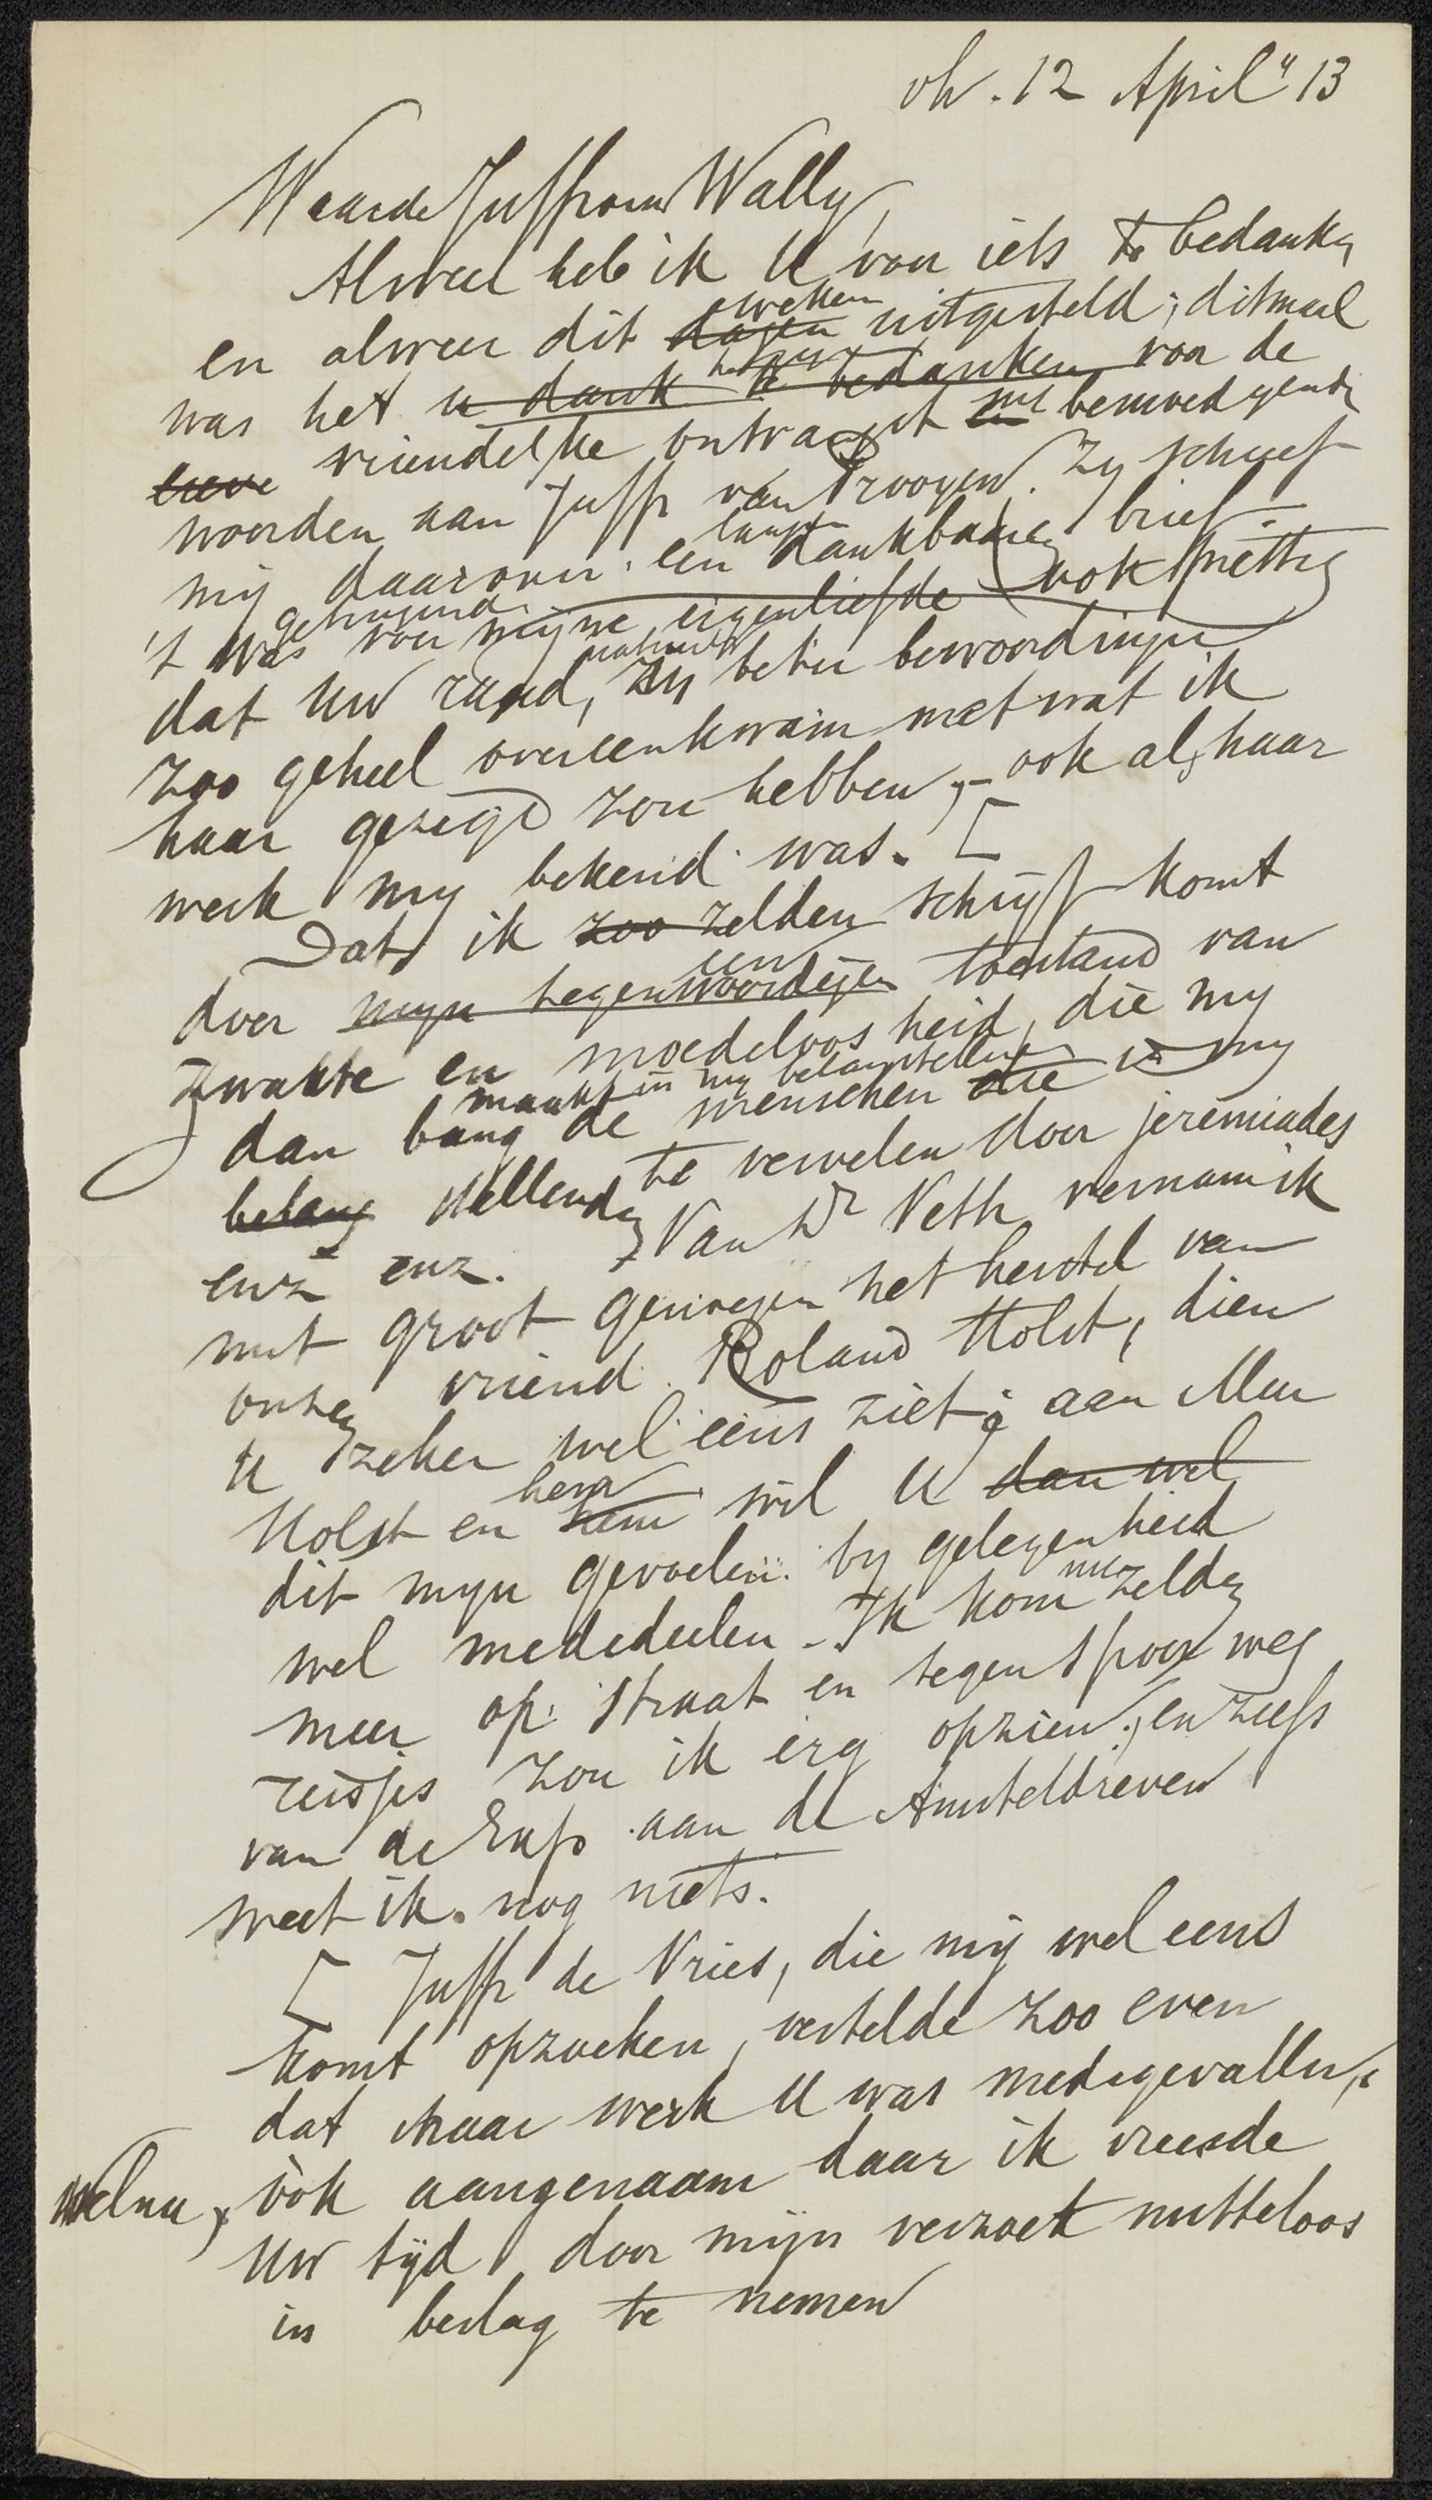 vh. 12 April "13
Waarde Juffrouw Wally,
Alweer heb ik U voor iets te bedanken
en alweer dit dagen weken uitgesteld; ditmaal
was het u dank te bedanken voor de
lieve vriendelijke ontvangst en met bemoedigende
woorden aan Juffr van Prooyen. Zij schreef
mij daarover een langen dankbaren brief.
't was voor mijne eigenliefde ook prettig
dat Uw raad, natuurlijk in beter bewoordingen
zoo geheel overeenkwam met wat ik
haar gezegd zou hebben, - ook als haar
werk my bekend was. [
Dat ik zoo zelden schrijf komt
door mijn tegenwoordigen een toestand van
zwakte en moedeloosheid, die my
dan bang maakt de in my belangstellende menschen die in my
belang stellenden te vervelen door jeremiades
enz enz. Van Dr Veth vernam ik
met groot genoegen het herstel van
onzen vriend Roland Holst, dien
U zeker wel eens ziet; aan Mevr
Holst en hem hem wil U dan wel
dit mijn gevoelen by gelegenheid
wel mededeelen. Ik kom nu zelden
meer op straat en tegen spoorweg
reisjes zou ik erg opzien; en zelfs
van de Expo aan de Amsteldreven
weet ik nog niets.
[ Juffr de Vries, die mij wel eens
komt opzoeken, vertelde zoo even
dat haar werk U was medegevallen,
welnu, ook aangenaam daar ik vreesde
Uw tijd door mijn verzoek nutteloos
in beslag te nemen